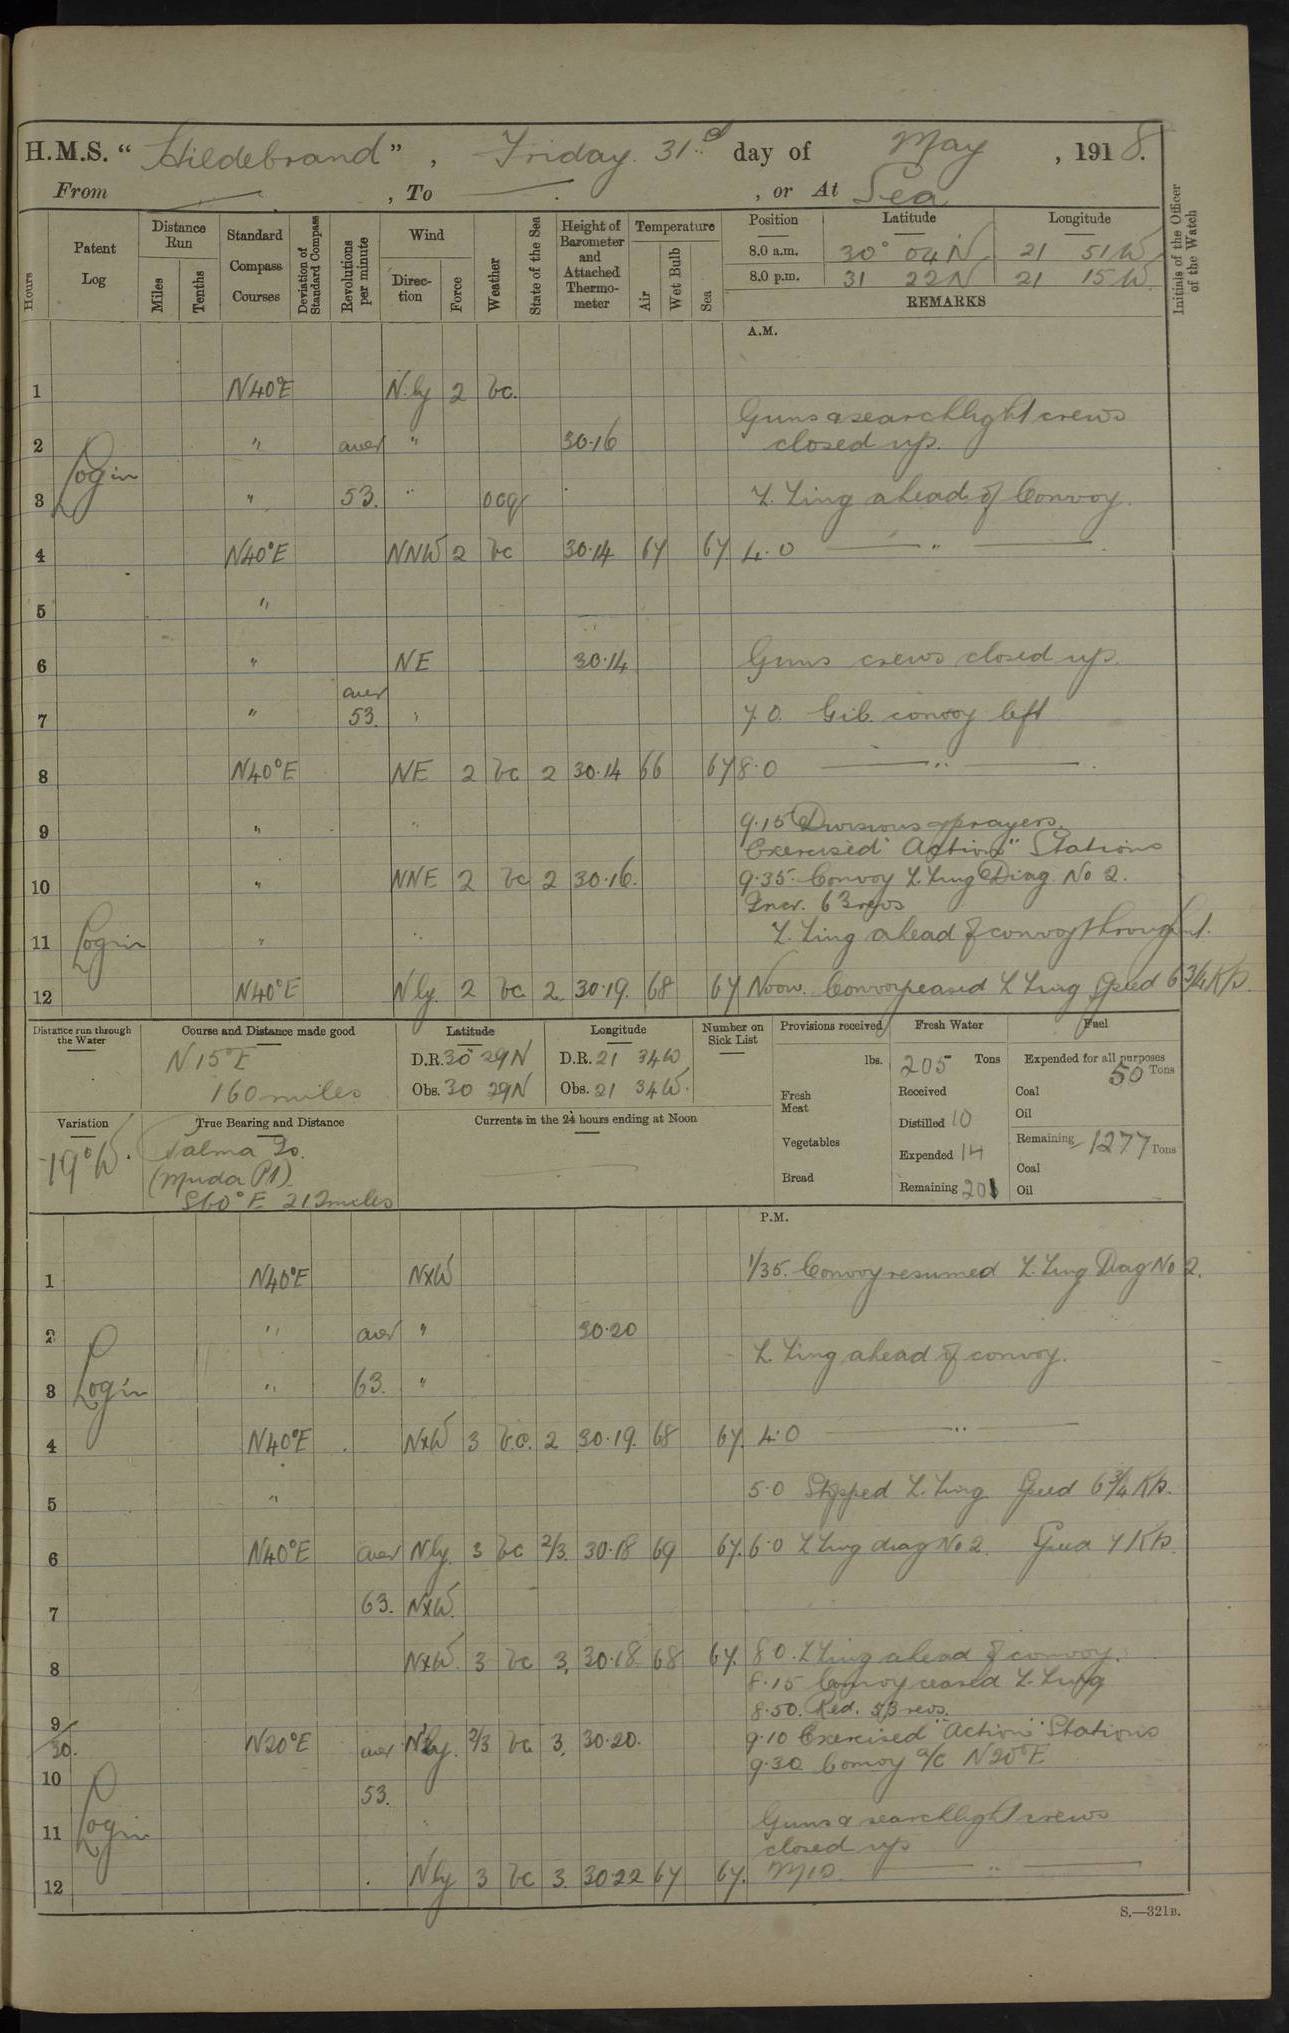 H.M.S. " Hildebrand " , Friday 31st day of May , 1918.
From — , To — , or At Sea
Hours
Patent Log
Distance Run
Miles
Tenths
Standard Compass Courses
Deviation of Standard Compass
Revolutions per minute
Wind
Direction
Force
Weather
State of the Sea
Height of Barometer and Attached Thermometer
Temperature
Air
Wet Bulb
Sea
Position Latitude Longitude
8.0 a.m. 30° 04 N 21 51 W
8.0 p.m. 31 22 N 21 15 W
REMARKS
Initials of the Officer of the Watch
A.M.
1 N40°E N.ly 2 bc.
Guns & searchlight crews
2 " aver " 30.16 closed up.
Log in
3 " 53. " ocq Z. Zing ahead of Convoy.
4 N40°E NNW 2 bc 30.14 67 67 4.0 — " —
5 "
6 " NE 30.14 Guns crews closed up.
aver
7 " 53. " 7.0. Gib. convoy left
8 N40°E NE 2 bc 2 30.14 66 67 8.0 — " —
9 " " 9.15 Divisions & prayers.
Exercised "Action" Stations
10 " NNE 2 bc 2 30.16. 9.35. Convoy Z. Zing Diag No 2.
Incr. 63 revs
11 Log in " " Z. Zing ahead of convoy throughout.
12 N40°E Nly. 2 bc 2. 30.19. 68 67 Noon. Convoy ceased Z Zing Speed 6 3/4 Kts.
Distance run through the Water
Course and Distance made good
N 15°E
160 miles
Latitude
D.R. 30° 29N
Obs. 30 29N
Longitude
D.R. 21 34W
Obs. 21 34W.
Number on Sick List
Provisions received
lbs.
Fresh Meat
Vegetables
Bread
Fresh Water
205 Tons
Received
Distilled 10
Expended 14
Remaining 201
Fuel
Expended for all purposes
50 Tons
Coal
Oil
Remaining 1277 Tons
Coal
Oil
Variation
19°W.
True Bearing and Distance
Palma Io.
(Muda Pt).
S60°E 212 miles
Currents in the 24 hours ending at Noon
P.M.
1 N40°E NxW 1/35. Convoy resumed Z. Zing Diag No 2.
2 " aver " 30.20
Z. Zing ahead of convoy.
3 Log in " 63. "
4 N40°E NxW 3 bc. 2 30.19. 68 67. 4.0 — " —
5 " 5.0 Stopped Z. Zing Speed 6 3/4 Kts.
6 N40°E aver Nly. 3 bc 2/3. 30.18 69 67. 6.0 Z Zing diag No 2. Speed 7 Kts.
7 63. NxW.
8 NxW. 3 bc 3. 30.18 68 67. 8.0. Z Zing ahead of convoy.
8.15 Convoy ceased Z. Zing
8.50. Red. 53 revs.
9/30. N20°E aver Nly. 2/3 bc 3. 30.20. 9.10 Exercised "Action" Stations
9.30 Convoy a/c N20°E
10 53.
11 Log in Guns & searchlight crews
closed up
12 Nly 3 bc 3. 30.22 67 67. Mid. — " —
S.—321B.